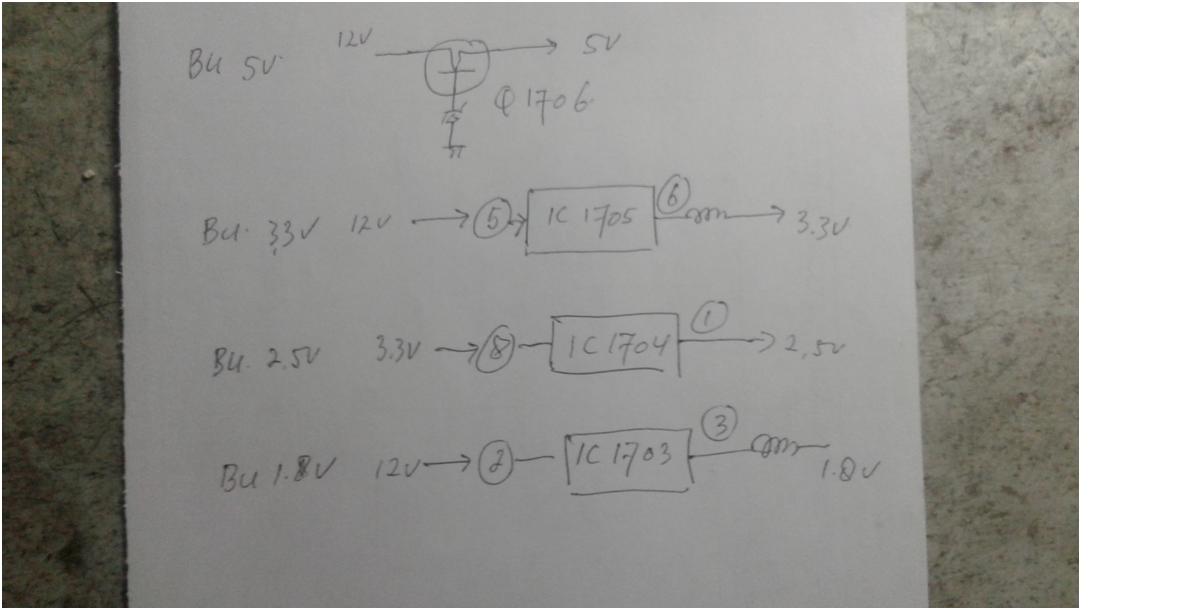 BU 5V 12V 5V
Q1706
BU. 3.3V 12V 5 IC 1705 6 3.3V
BU. 2.5V 3.3V 8 IC 1704 1 2.5V
BU 1.8V 12V 2 IC 1703 3 1.8V